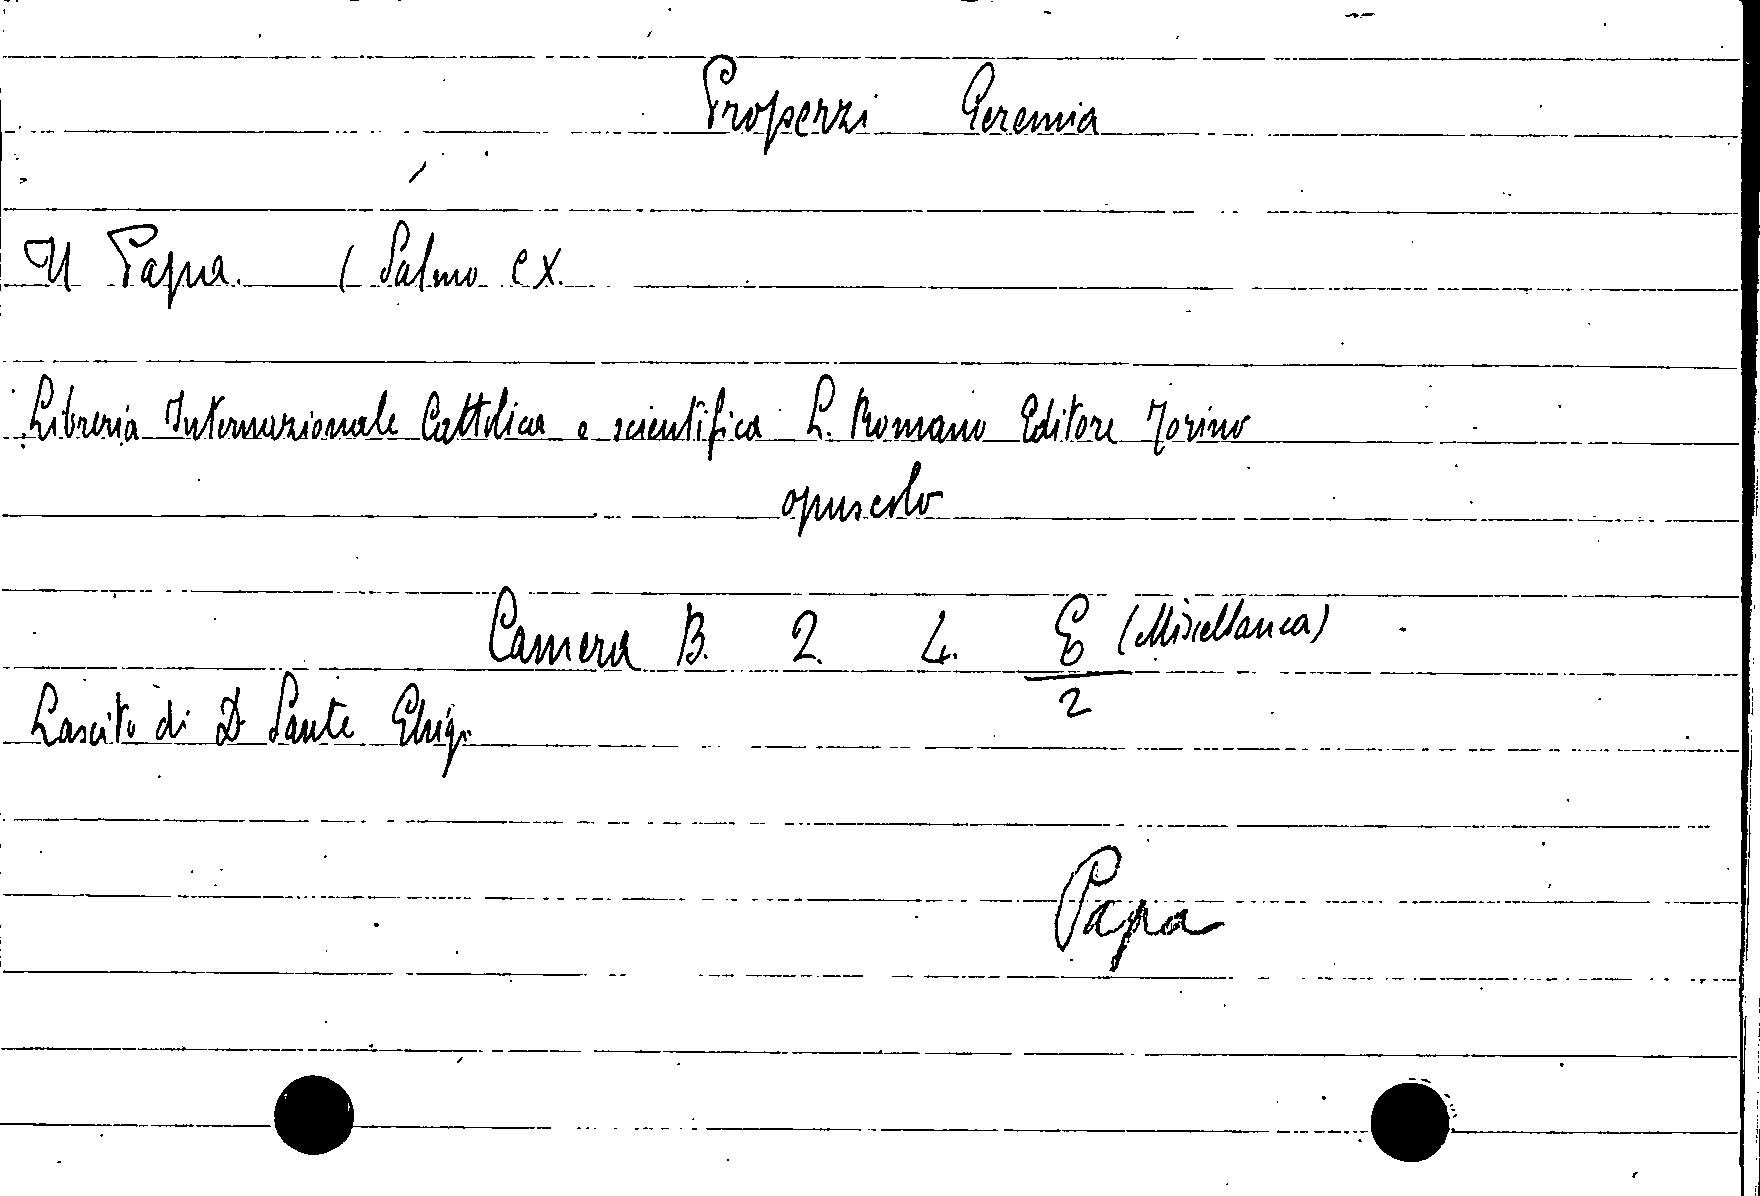 Properzi Geremia
Il Papa. ( Salmo CX.
Libreria Internazionale Cattolica e scientifica L. Romano Editore Torino
opuscolo
Camera B. 2. 4. E (Miscellanea)
2
Lascito di D Sante
Papa